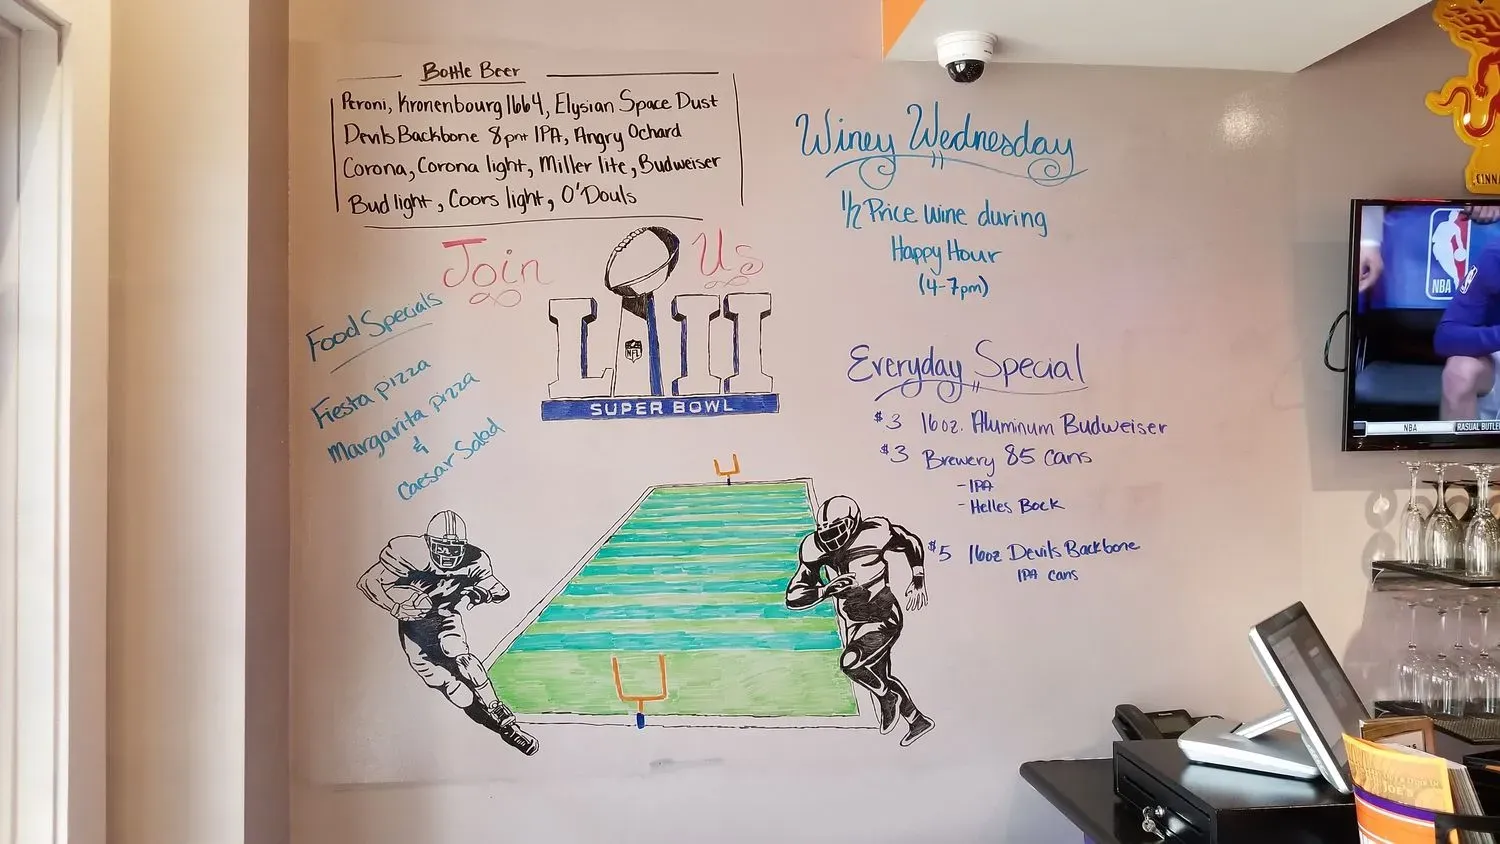 Bottle Beer
Peroni, Kronenbourg 1664, Elysian Space Dust
Devils Backbone 8pnt IPA, Angry Ochard
Corona, Corona light, Miller lite, Budweiser
Bud light, Coors light, O'Douls
Join Us
LII
NFL
SUPER BOWL
Food Specials
Fiesta pizza
Margarita pizza
&
Caesar Salad
Winey Wednesday
1/2 Price wine during
Happy Hour
(4-7pm)
Everyday Special
$3 16oz. Aluminum Budweiser
$3 Brewery 85 cans
- IPA
- Helles Bock
$5 16oz Devils Backbone
IPA cans
NBA
NBA
JOE'S